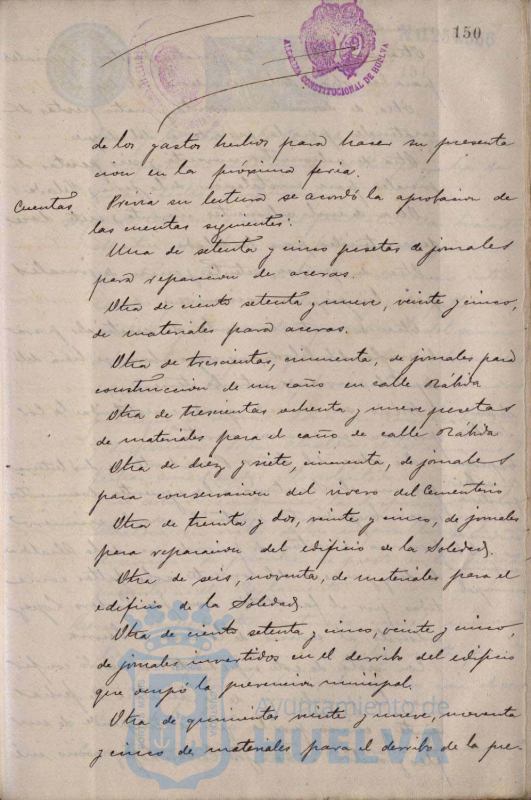 150
ALCALDIA CONSTITUCIONAL DE HUELVA
de los gastos hechos para hacer su presenta
cion en la próxima feria.
Cuentas
Previa su lectura se acordó la aprobacion de
las cuentas siguientes:
Una de setenta y cinco pesetas de jornales
para reparacion de aceras.
Otra de ciento setenta y nueve, veinte y cinco,
de materiales para aceras.
Otra de trescientas, cincuenta, de jornales para
construccion de un caño en calle Rábida
Otra de trescientas ochenta y nueve pesetas
de materiales para el caño de calle Rábida
Otra de diez y siete, cincuenta, de jornales
para conservacion del vivero del Cementerio
Otra de treinta y dos, veinte y cinco, de jornales
para reparacion del edificio de la Soledad.
Otra de seis, noventa, de materiales para el
edificio de la Soledad.
Otra de ciento setenta y cinco, veinte y cinco,
de jornales invertidos en el derribo del edificio
que ocupó la prevencion municipal.
Otra de quinientas veinte y nueve, noventa
y cinco de materiales para el derribo de la pre-
Ayuntamiento de
HUELVA